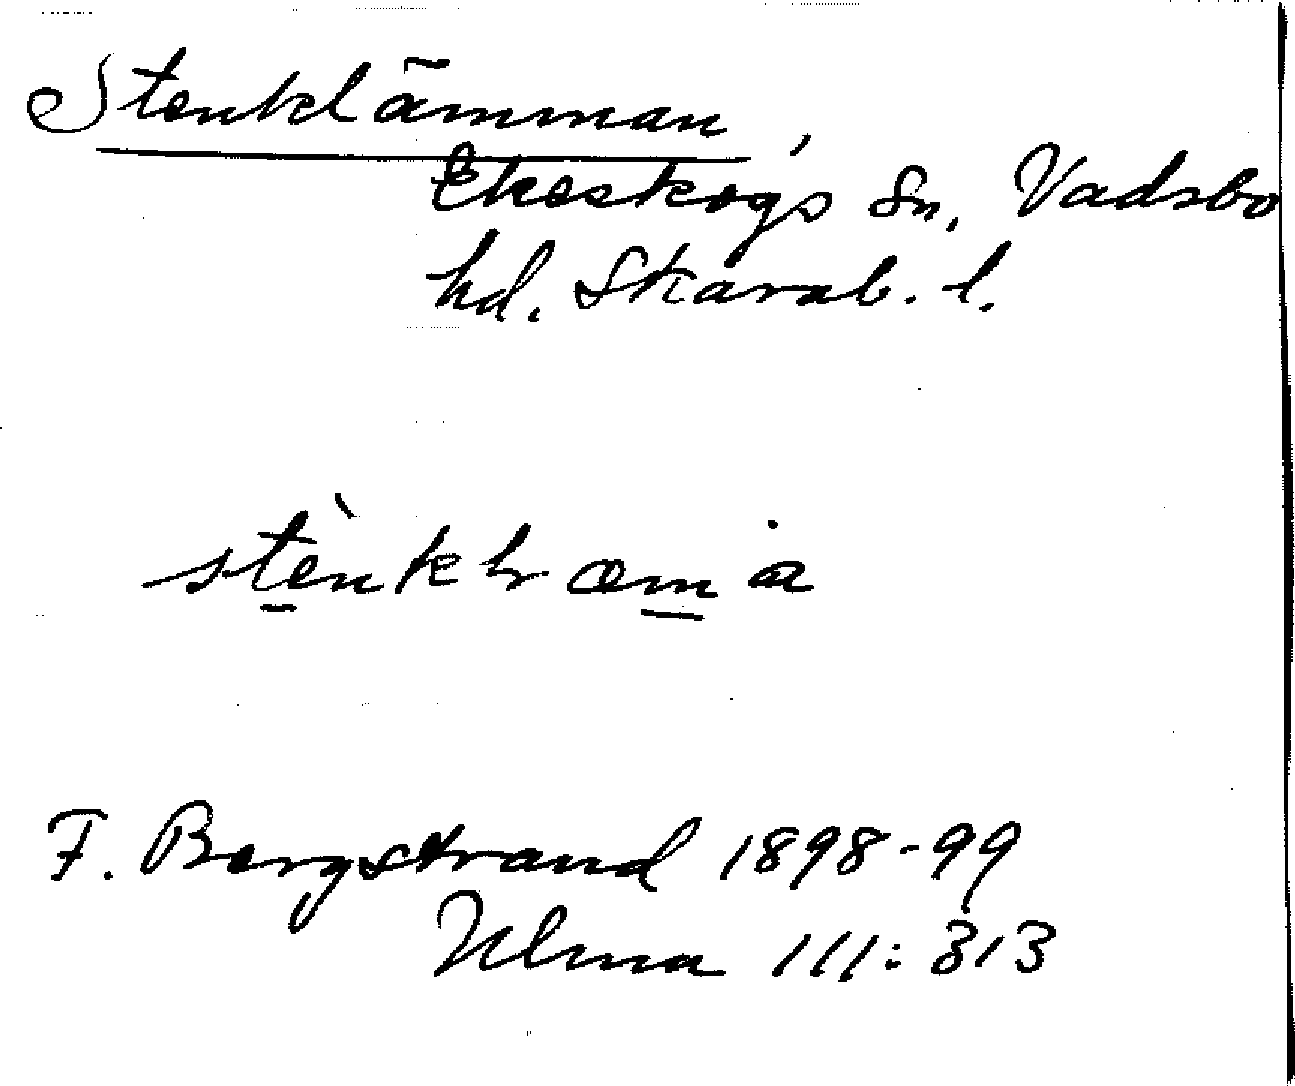 Stenklämman,
Ekeskogs Sn, Vadsbo
hd. Skarab. l.
stènklæmȧ
F. Bergstrand 1898-99
Ulma 111:313